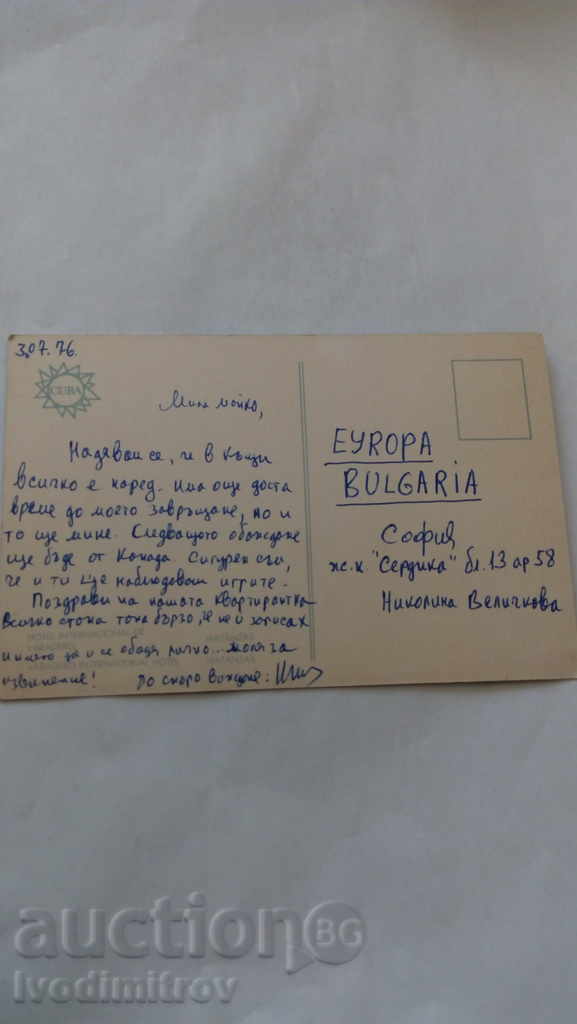 3.07.76.
CUBA
Мила майко,
Надявам се, че в къщи
всичко е наред. Има още доста
време до моето завръщане, но и
то ще мине. Следващото обаждане
ще бъде от Канада. Сигурен съм,
че и ти ще наблюдаваш игрите.
Поздрави на нашата квартирантка
Всичко стана така бързо, че не й записах
името да и се обадя лично... моля за
извинение! До скоро виждане:
EYROPA
BULGARIA
София
ж.к "Сердика" бл.13 ap 58
Николина Величкова
auctionBG
Ivodimitrov